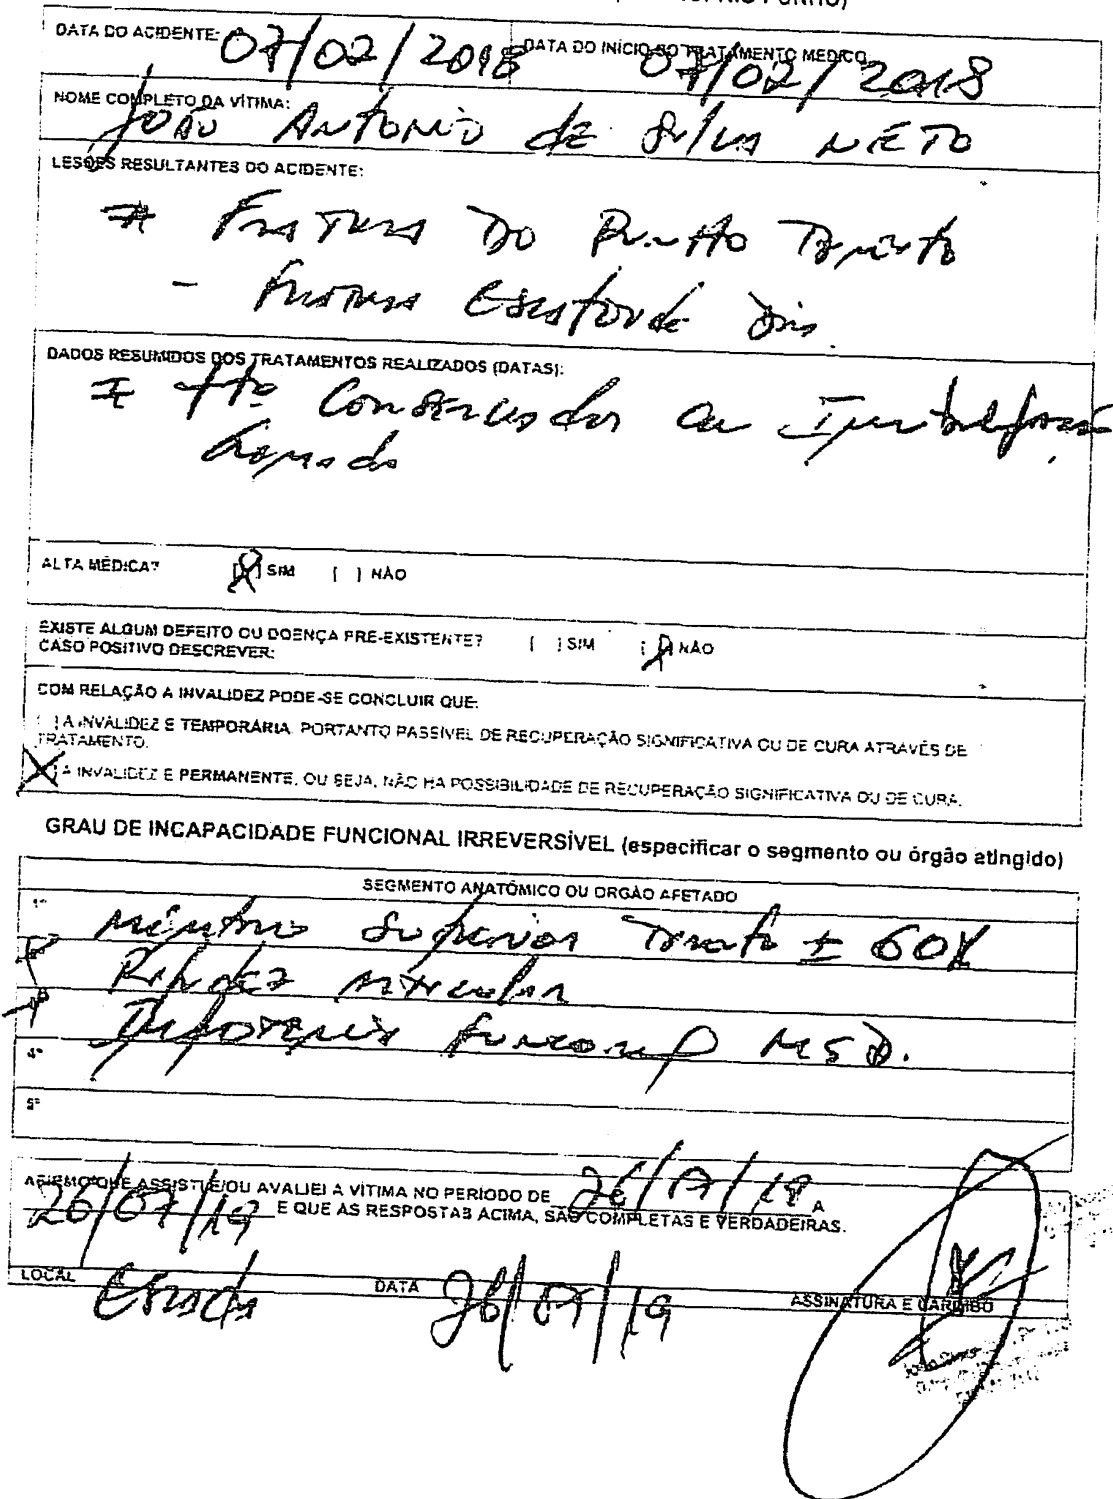 PUNHO)
DATA DO ACIDENTE: 07/02/2018 DATA DO INÍCIO DO TRATAMENTO MEDICO 07/02/2018
NOME COMPLETO DA VÍTIMA:
JOÃO ANTONIO DE SILVA NETO
LESÕES RESULTANTES DO ACIDENTE:
# FRATURA DO PUNHO DIREITO
- FRATURA
DADOS RESUMIDOS DOS TRATAMENTOS REALIZADOS (DATAS):
tto Conservador
ALTA MÉDICA? [X] SIM [ ] NÃO
EXISTE ALGUM DEFEITO OU DOENÇA PRE-EXISTENTE? [ ] SIM [X] NÃO
CASO POSITIVO DESCREVER:
COM RELAÇÃO A INVALIDEZ PODE-SE CONCLUIR QUE:
[ ] A INVALIDEZ E TEMPORARIA, PORTANTO PASSIVEL DE RECUPERAÇÃO SIGNIFICATIVA OU DE CURA ATRAVÉS DE
TRATAMENTO.
[X] A INVALIDEZ E PERMANENTE, OU SEJA, NÃO HA POSSIBILIDADE DE RECUPERAÇÃO SIGNIFICATIVA OU DE CURA.
GRAU DE INCAPACIDADE FUNCIONAL IRREVERSÍVEL (especificar o segmento ou órgão atingido)
SEGMENTO ANATÔMICO OU ORGÃO AFETADO
1º Membro Superior Direito ± 60%
Rigidez Articular
Impotencia Funcional MSD.
4º
5º
AFIRMO QUE ASSISTI E/OU AVALIEI A VÍTIMA NO PERÍODO DE 26/07/19 A
26/07/19 E QUE AS RESPOSTAS ACIMA, SÃO COMPLETAS E VERDADEIRAS.
LOCAL Escada DATA 26/07/19 ASSINATURA E CARIMBO